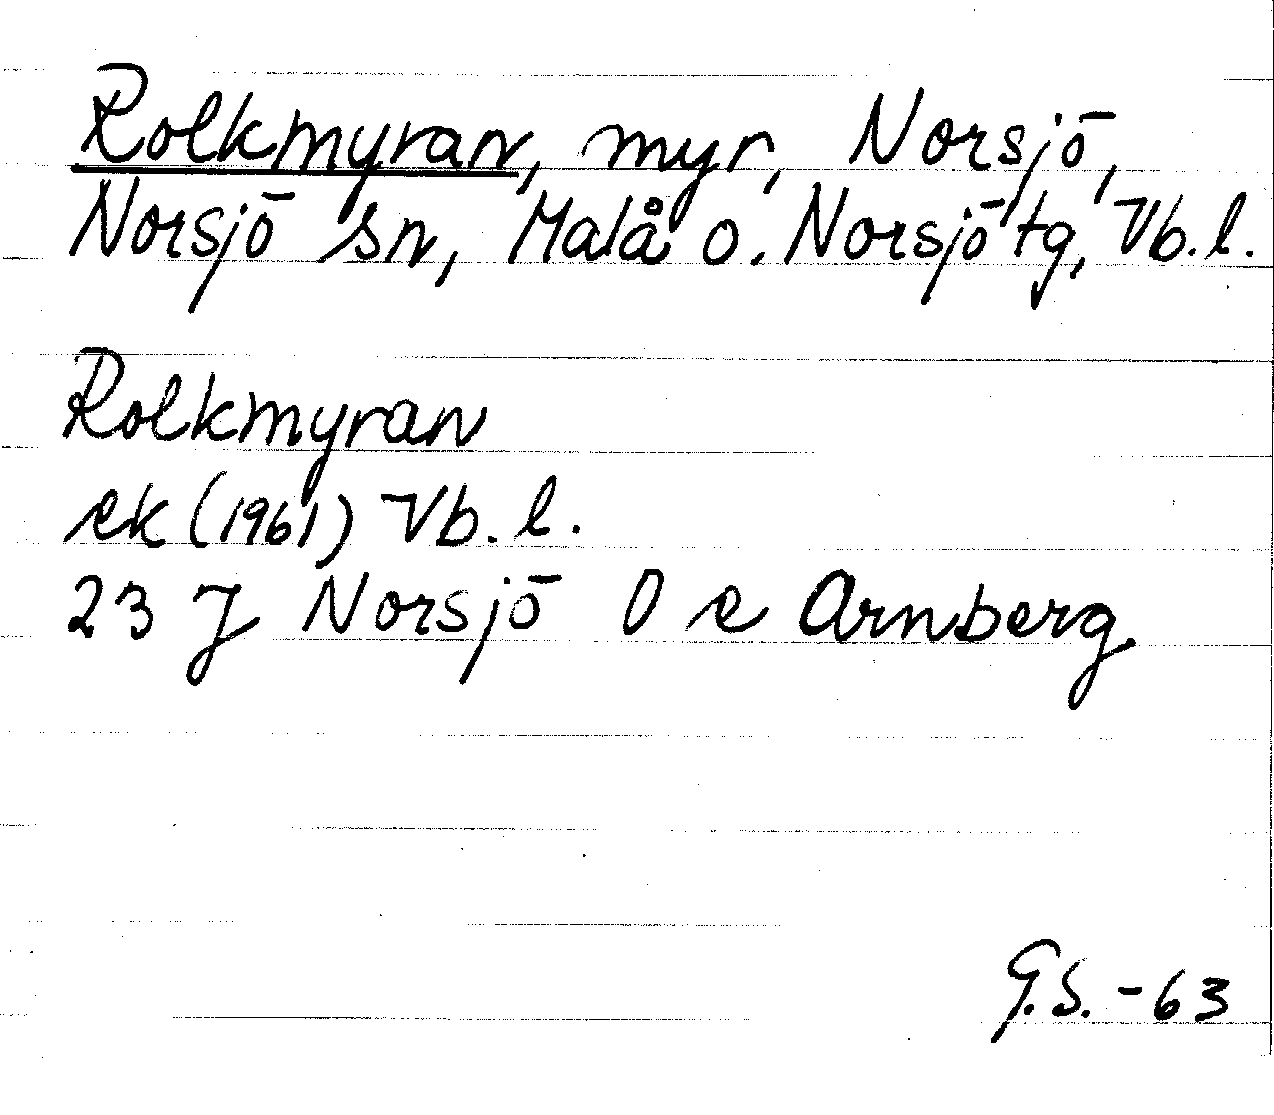 Rolkmyran, myr, Norsjö,
Norsjö sn, Malå o. Norsjö tg, Vb. l.
Rolkmyran
ek (1961) Vb. l.
23 J Norsjö O e Arnberg
G.S. -63